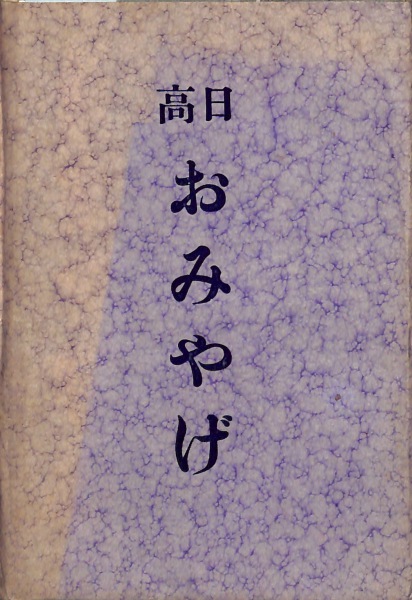 日高
おみやげ